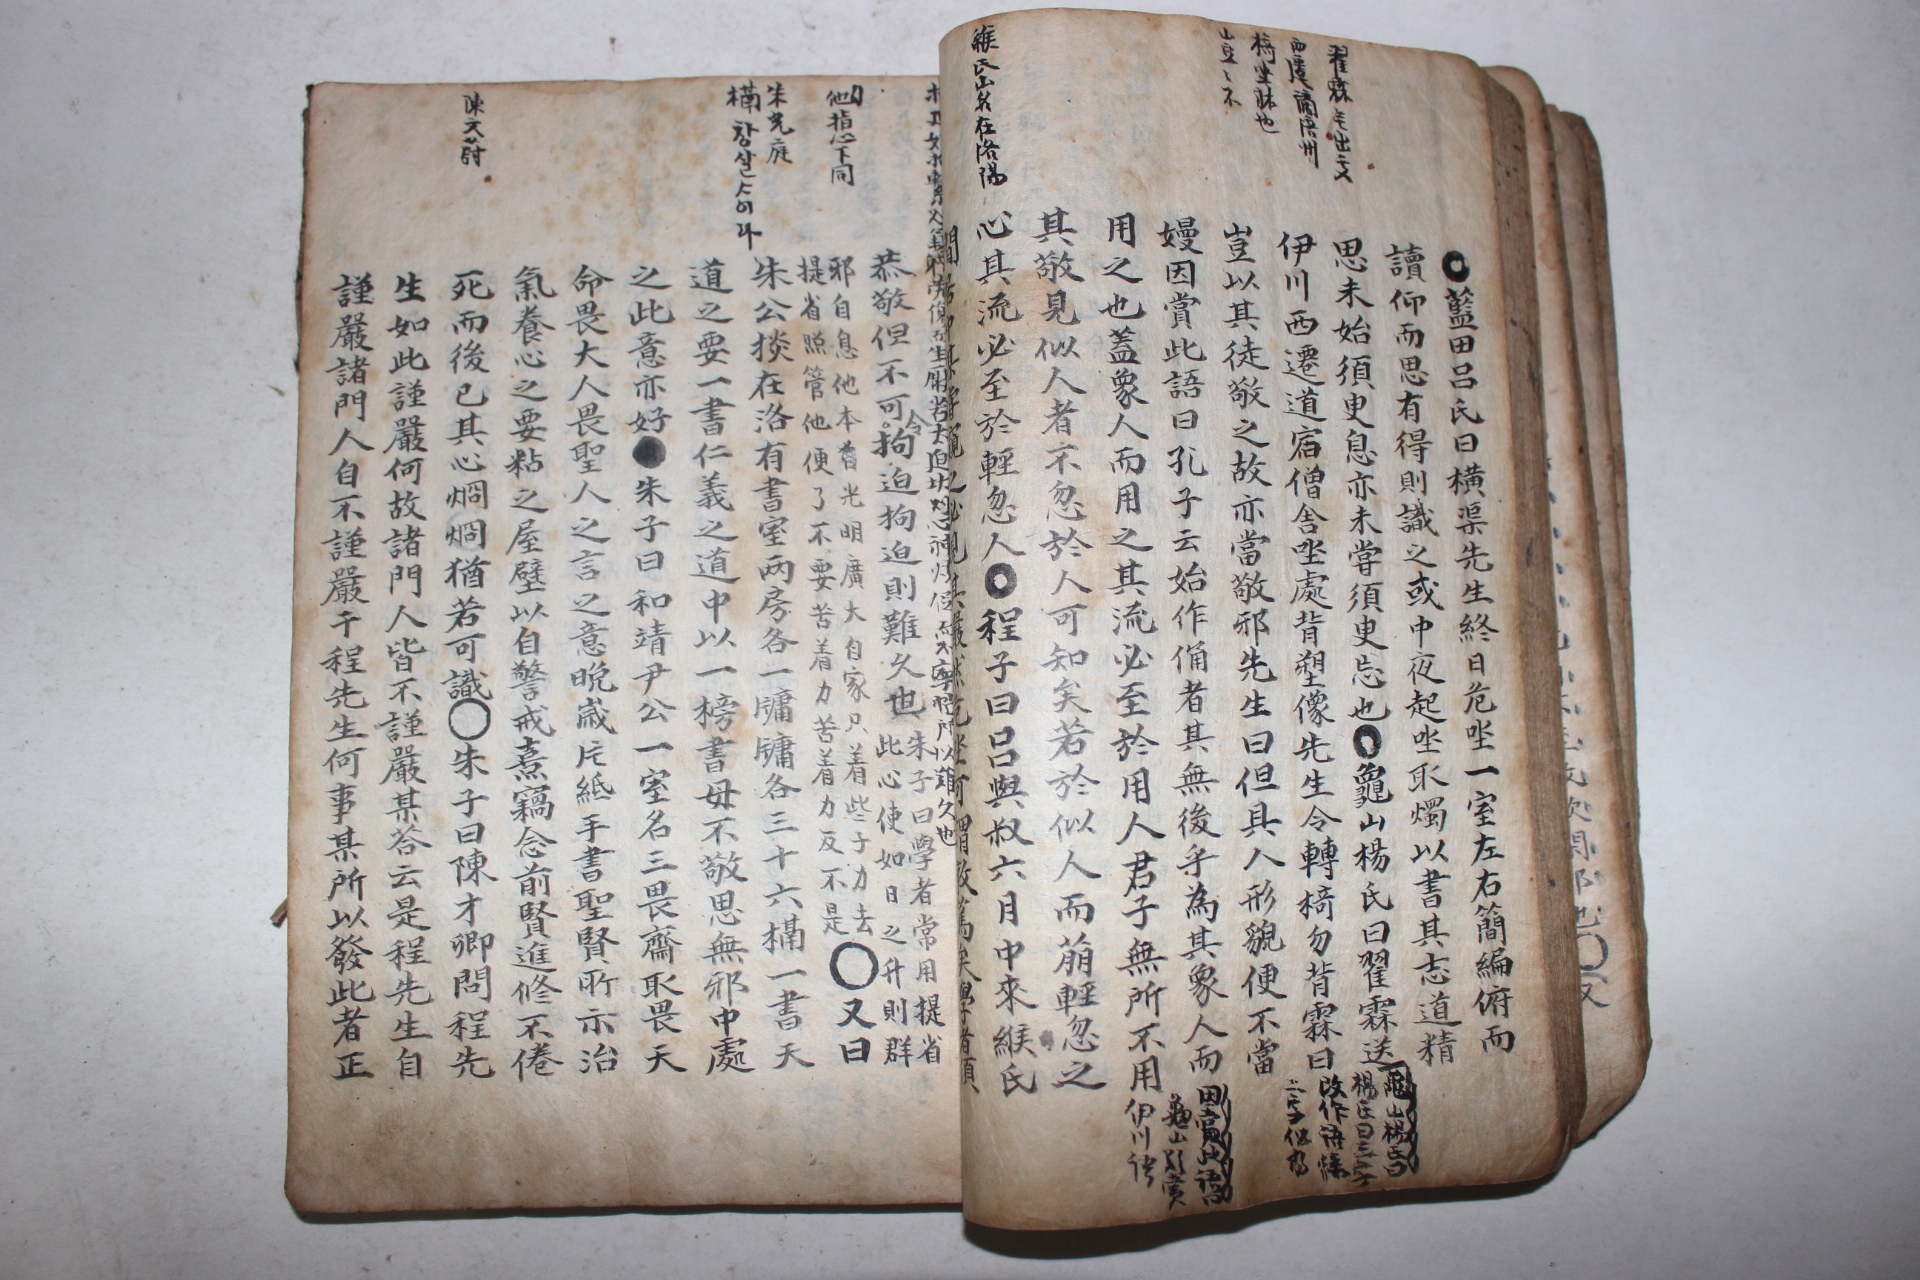 翟霖
山名在洛陽
○藍田呂氏曰橫渠先生終日危坐一室左右簡編俯而
讀仰而思有得則識之或中夜起坐取燭以書其志道精
思未始須臾息亦未嘗須臾忘也○龜山楊氏曰翟霖送
伊川西遷道宿僧舍坐處背塑像先生令轉椅勿背霖曰
豈以其徒敬之故亦當敬邪先生曰但具人形貌便不當
嫚因賞此語曰孔子云始作俑者其無後乎為其象人而
用之也蓋象人而用之其流必至於用人君子無所不用
其敬見似人者不忽於人可知矣若於似人而崩輕忽之
心其流必至於輕忽人○程子曰呂與叔六月中來緱氏
他指心下同
朱光庭
槅 창살 이라
陳文蔚
恭敬但不可令拘迫拘迫則難久也
朱子曰學者常用提省
此心使如日之升則群
邪自息他本自光明廣大自家只着些子力去
提省照管他便了不要苦着力苦着力反不是
○又曰
朱公掞在洛有書室兩房各一牖牖各三十六槅一書天
道之要一書仁義之道中以一榜書毋不敬思無邪中處
之此意亦好●朱子曰和靖尹公一室名三畏齋取畏天
命畏大人畏聖人之言之意晩嵗片紙手書聖賢所示治
氣養心之要粘之屋壁以自警戒熹竊念前賢進修不倦
死而後已其心烱烱猶若可識○朱子曰陳才卿問程先
生如此謹嚴何故諸門人皆不謹嚴某答云是程先生自
謹嚴諸門人自不謹嚴干程先生何事某所以發此者正